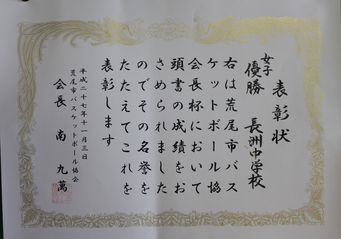 表彰状
女子
優勝 長洲中学校
右は荒尾市バス
ケットボール協
会長杯において
頭書の成績をお
さめられました
のでその名誉を
たたえてこれを
表彰します
平成二十七年十一月三日
荒尾市バスケットボール協会
会長 南九萬